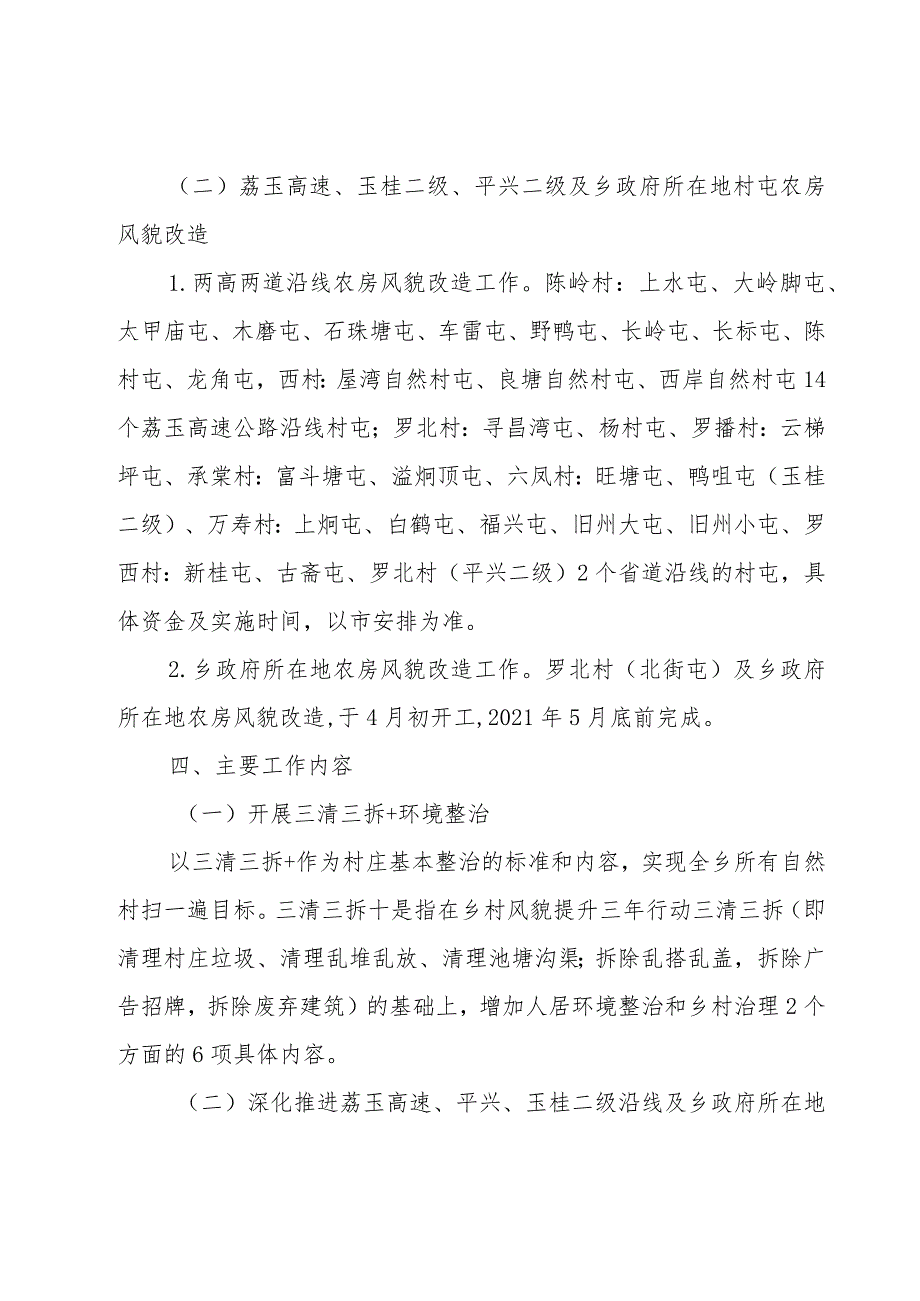 （二）荔玉高速、玉桂二级、平兴二级及乡政府所在地村屯农房
风貌改造
1.两高两道沿线农房风貌改造工作。陈岭村：上水屯、大岭脚屯、
太甲庙屯、木磨屯、石珠塘屯、车雷屯、野鸭屯、长岭屯、长标屯、陈
村屯、龙角屯，西村：屋湾自然村屯、良塘自然村屯、西岸自然村屯14
个荔玉高速公路沿线村屯；罗北村：寻昌湾屯、杨村屯、罗播村：云梯
坪屯、承棠村：富斗塘屯、溢炯顶屯、六凤村：旺塘屯、鸭咀屯（玉桂
二级）、万寿村：上炯屯、白鹤屯、福兴屯、旧州大屯、旧州小屯、罗
西村：新桂屯、古斋屯、罗北村（平兴二级）2个省道沿线的村屯，具
体资金及实施时间，以市安排为准。
2.乡政府所在地农房风貌改造工作。罗北村（北街屯）及乡政府
所在地农房风貌改造,于4月初开工,2021年5月底前完成。
四、主要工作内容
（一）开展三清三拆+环境整治
以三清三拆+作为村庄基本整治的标准和内容，实现全乡所有自然
村扫一遍目标。三清三拆十是指在乡村风貌提升三年行动三清三拆（即
清理村庄垃圾、清理乱堆乱放、清理池塘沟渠；拆除乱搭乱盖，拆除广
告招牌，拆除废弃建筑）的基础上，增加人居环境整治和乡村治理2个
方面的6项具体内容。
（二）深化推进荔玉高速、平兴、玉桂二级沿线及乡政府所在地